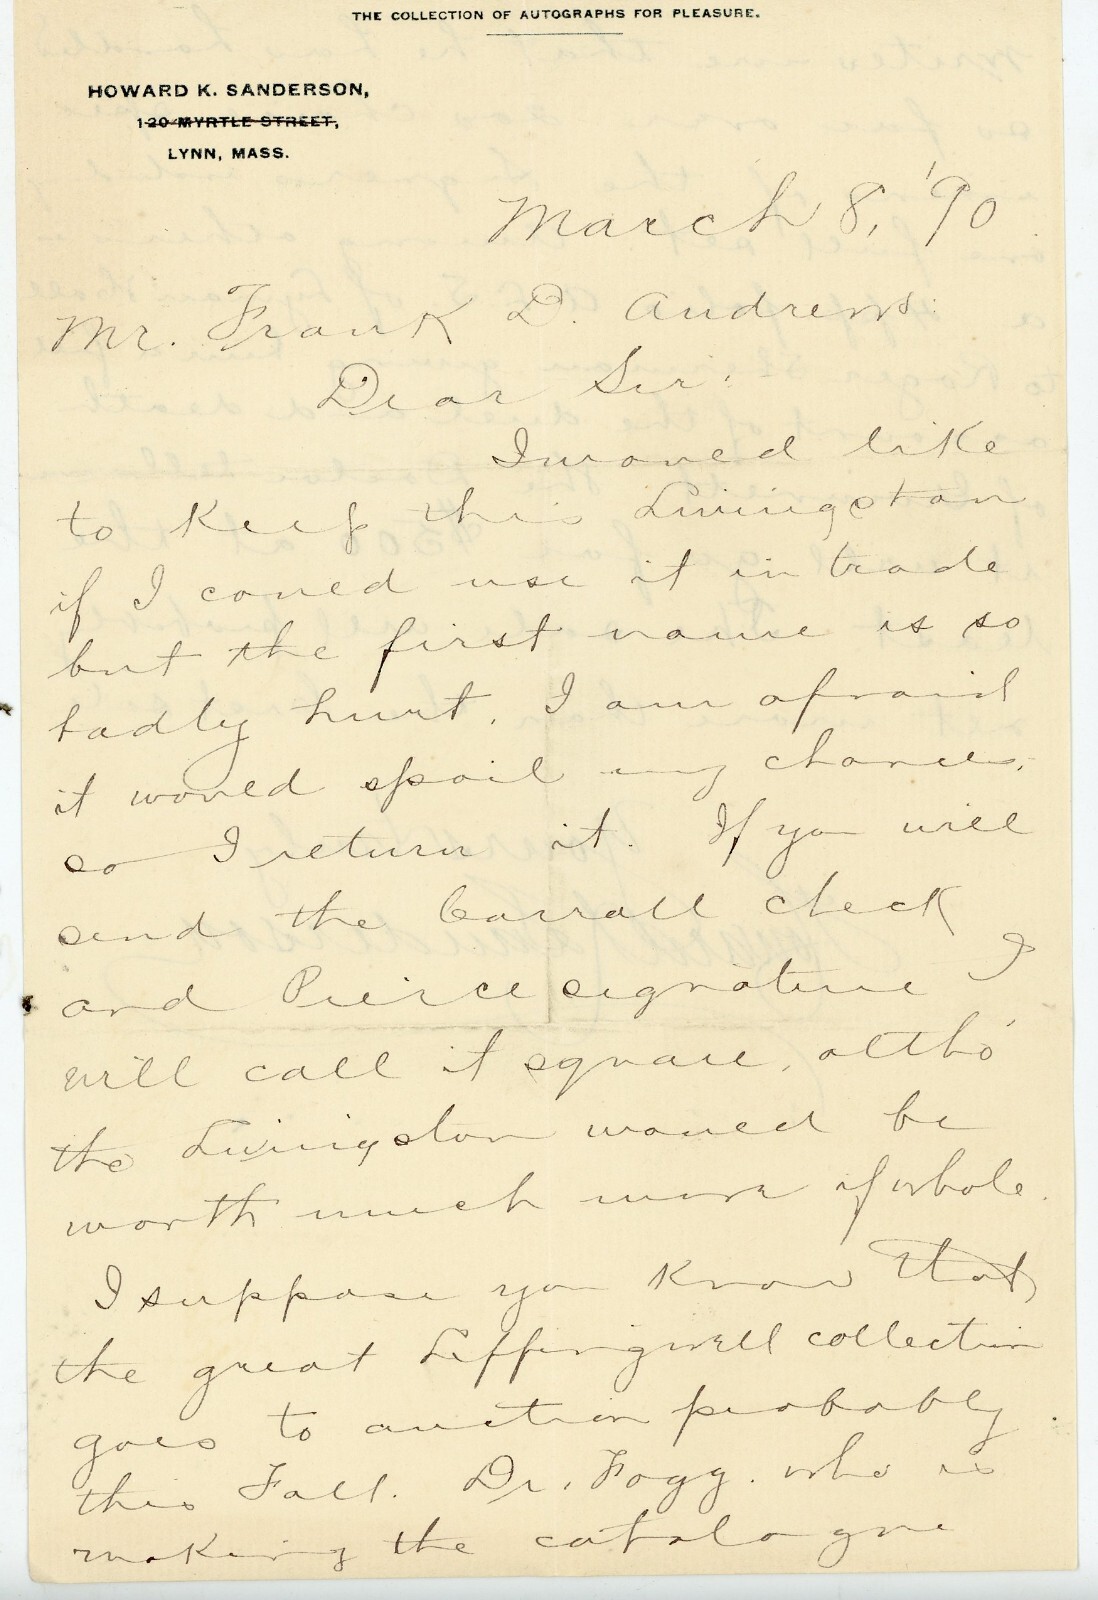 THE COLLECTION OF AUTOGRAPHS FOR PLEASURE.
HOWARD K. SANDERSON,
120 MYRTLE STREET,
LYNN, MASS.
March 8, '90
Mr. Frank D. Andrews:
Dear Sir:
I would like
to keep this Livingston
if I could use it in trade
but the first name is so
badly hurt. I am afraid
it would spoil my chances,
so I return it. If you will
send the Carroll check
and Pierce signature I
will call it square, altho'
the Livingston would be
worth much more if whole.
I suppose you know that
the great Leffingwell collection
goes to auction probably
this Fall. Dr. Fogg. who is
making the catalogue